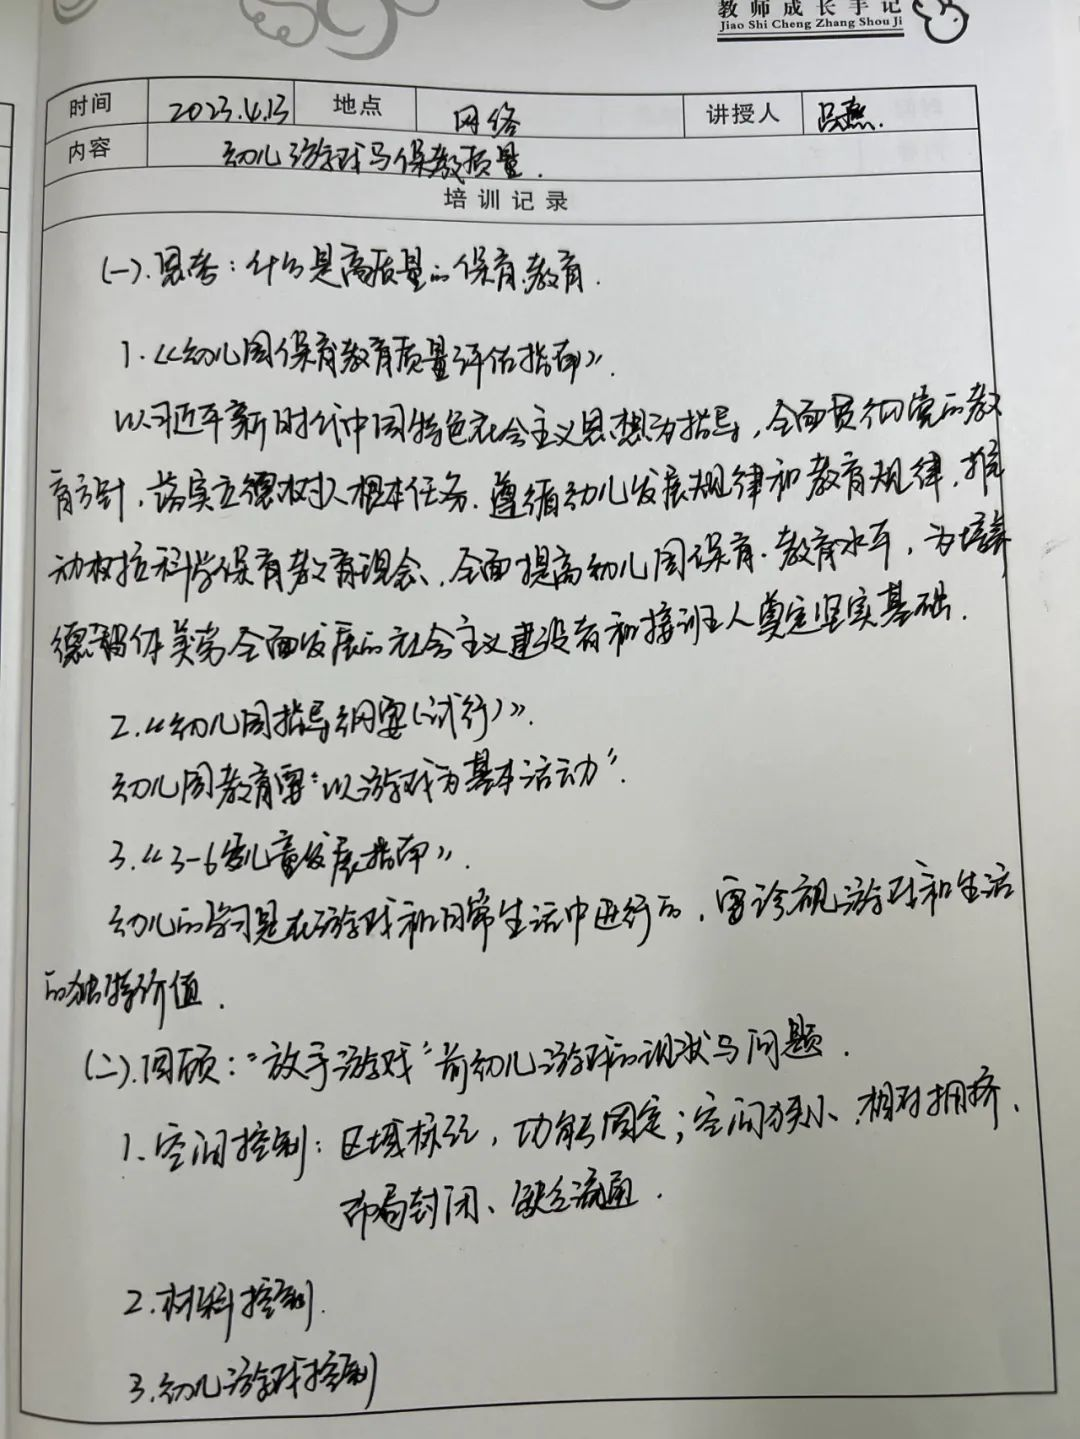 教师成长手记
Jiao Shi Cheng Zhang Shou Ji
时间 2023.4.13 地点 网络 讲授人 吕燕.
内容 幼儿游戏与保教质量.
培训记录
(一).思考:什么是高质量的保育教育.
1.《幼儿园保育教育质量评估指南》.
以习近平新时代中国特色社会主义思想为指导,全面贯彻党的教
育方针,落实立德树人根本任务.遵循幼儿发展规律和教育规律,推
动树拉科学保育教育理念、全面提高幼儿园保育.教育水平,为培养
德智体美劳全面发展的社会主义建设者和接班人奠定坚实基础.
2.《幼儿园指导纲要(试行)》.
幼儿园教育要"以游戏为基本活动".
3.《3-6岁儿童发展指南》.
幼儿的学习是在游戏和日常生活中进行的,要珍视游戏和生活
的独特价值.
(二).回顾:"放手游戏"前幼儿游戏的现状与问题.
1.空间控制:区域标记,功能固定;空间狭小、相对拥挤、
布局封闭、缺乏流通.
2.材料控制.
3.幼儿游戏控制